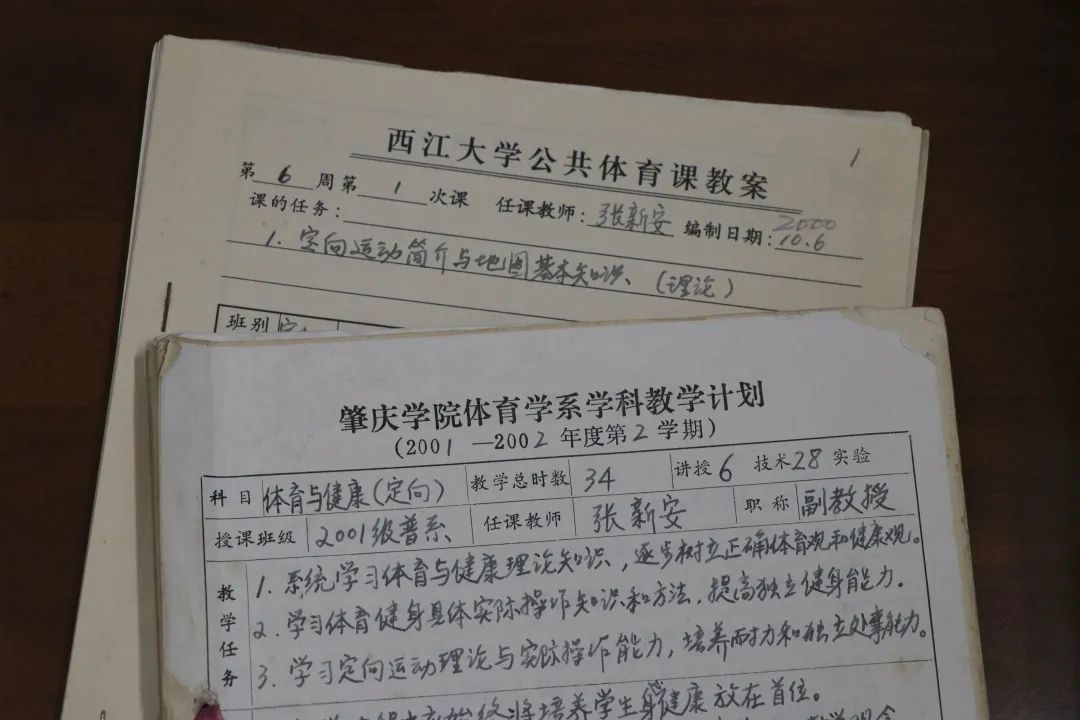 西江大学公共体育课教案
1
第6周第1次课 任课教师:张新安 编制日期:2000
10.6
课的任务:
1.定向运动简介与地图基本知识、(理论)
班别
肇庆学院体育学系学科教学计划
(2001—2002年度第2学期)
科目 体育与健康(定向) 教学总时数 34 讲授6 技术28 实验
授课班级 2001级普系 任课教师 张新安 职称 副教授
教学任务
1.系统学习体育与健康理论知识,逐步树立正确体育观和健康观。
2.学习体育健身具体实际操作知识和方法,提高独立健身能力。
3.学习定向运动理论与实际操作能力,培养耐力和独立处事能力。
始终将培养学生身健康放在首位。